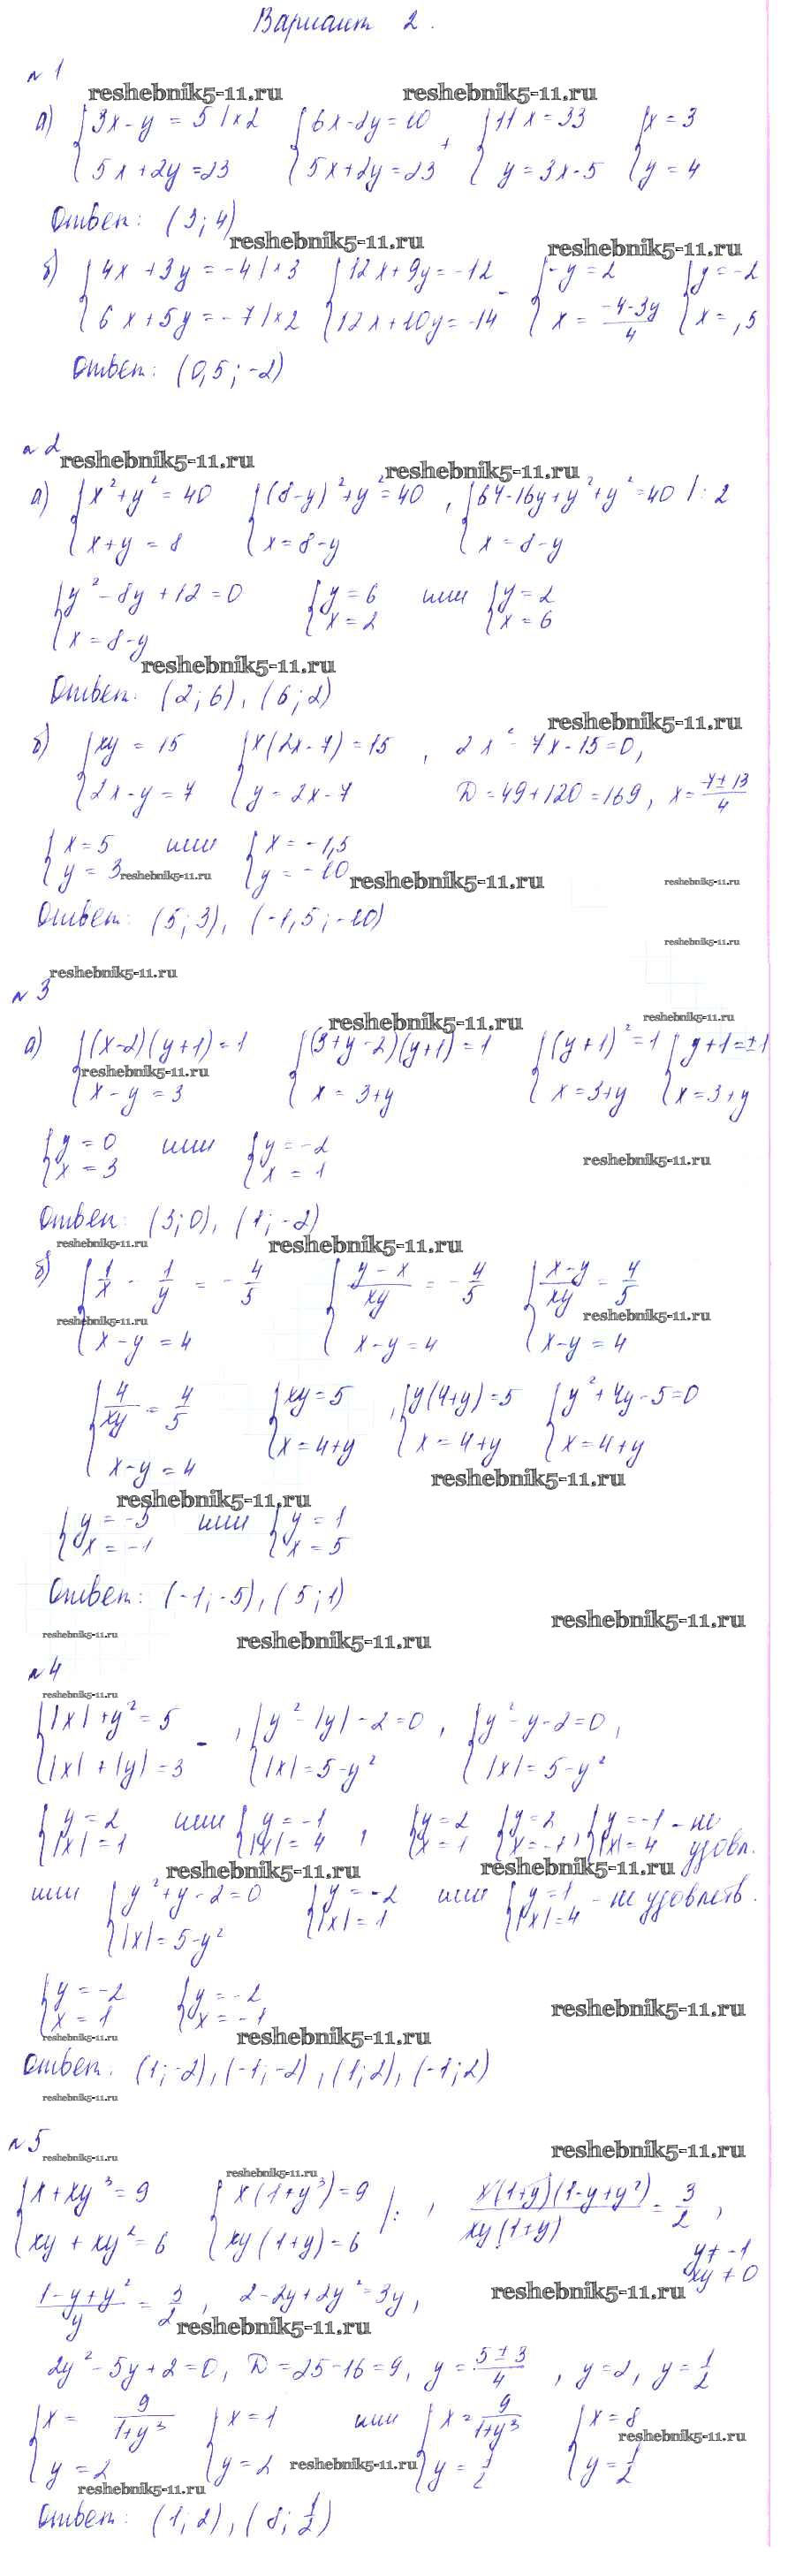 Вариант 2.
№1
reshebnik5-11.ru reshebnik5-11.ru
а) {3x-y=5 |×2 {6x-2y=10 + {11x=33 {x=3
{5x+2y=23 {5x+2y=23 {y=3x-5 {y=4
Ответ: (3;4)
reshebnik5-11.ru reshebnik5-11.ru
б) {4x+3y=-4 |×3 {12x+9y=-12 - {-y=2 {y=-2
{6x+5y=-7 |×2 {12x+10y=-14 {x=(-4-3y)/4 {x=,5
Ответ: (0,5;-2)
№2
reshebnik5-11.ru reshebnik5-11.ru
а) {x²+y²=40 {(8-y)²+y²=40 , {64-16y+y²+y²=40 |:2
{x+y=8 {x=8-y {x=8-y
{y²-8y+12=0 {y=6 или {y=2
{x=8-y {x=2 {x=6
reshebnik5-11.ru
Ответ: (2;6), (6;2)
reshebnik5-11.ru
б) {xy=15 {x(2x-7)=15 , 2x²-7x-15=0,
{2x-y=7 {y=2x-7 D=49+120=169, x=(7±13)/4
{x=5 или {x=-1,5
{y=3 {y=-10
reshebnik5-11.ru reshebnik5-11.ru reshebnik5-11.ru
Ответ: (5;3), (-1,5;-10)
reshebnik5-11.ru
reshebnik5-11.ru
№3
reshebnik5-11.ru reshebnik5-11.ru
а) {(x-2)(y+1)=1 {(3+y-2)(y+1)=1 {(y+1)²=1 {y+1=±1
reshebnik5-11.ru
{x-y=3 {x=3+y {x=3+y {x=3+y
{y=0 или {y=-2
{x=3 {x=1
reshebnik5-11.ru
Ответ: (3;0), (1;-2)
reshebnik5-11.ru reshebnik5-11.ru
б) {1/x-1/y=-4/5 {(y-x)/xy=-4/5 {(x-y)/xy=4/5
reshebnik5-11.ru reshebnik5-11.ru
{x-y=4 {x-y=4 {x-y=4
{4/xy=4/5 {xy=5 , {y(4+y)=5 {y²+4y-5=0
{x-y=4 {x=4+y {x=4+y {x=4+y
reshebnik5-11.ru
reshebnik5-11.ru
{y=-5 или {y=1
{x=-1 {x=5
Ответ: (-1;-5), (5;1)
reshebnik5-11.ru
reshebnik5-11.ru reshebnik5-11.ru
№4
reshebnik5-11.ru
{|x|+y²=5 - , {y²-|y|-2=0 , {y²-y-2=0,
{|x|+|y|=3 {|x|=5-y² {|x|=5-y²
{y=2 или {y=-1 , {y=2 {y=2 , {y=-1 - не
{|x|=1 {|x|=4 {x=1 {x=-1 {|x|=4 удовл.
reshebnik5-11.ru reshebnik5-11.ru
или {y²+y-2=0 {y=-2 или {y=1 - не удовлетв.
{|x|=5-y² {|x|=1 {|x|=4
{y=-2 {y=-2
{x=1 {x=-1
reshebnik5-11.ru
reshebnik5-11.ru reshebnik5-11.ru
Ответ. (1;-2), (-1;-2), (1;2), (-1;2)
reshebnik5-11.ru
№5
reshebnik5-11.ru reshebnik5-11.ru
reshebnik5-11.ru
{x+xy³=9 {x(1+y³)=9 |: , x(1+y)(1-y+y²)/xy(1+y)=3/2,
{xy+xy²=6 {xy(1+y)=6
y≠-1
xy≠0
(1-y+y²)/y=3/2, 2-2y+2y²=3y,
reshebnik5-11.ru
reshebnik5-11.ru
2y²-5y+2=0, D=25-16=9, y=(5±3)/4 , y=2, y=1/2
{x=9/(1+y³) {x=1 или {x=9/(1+y³) {x=8
{y=2 {y=2 {y=1/2 {y=1/2
reshebnik5-11.ru
reshebnik5-11.ru
reshebnik5-11.ru
Ответ: (1;2), (8;1/2)